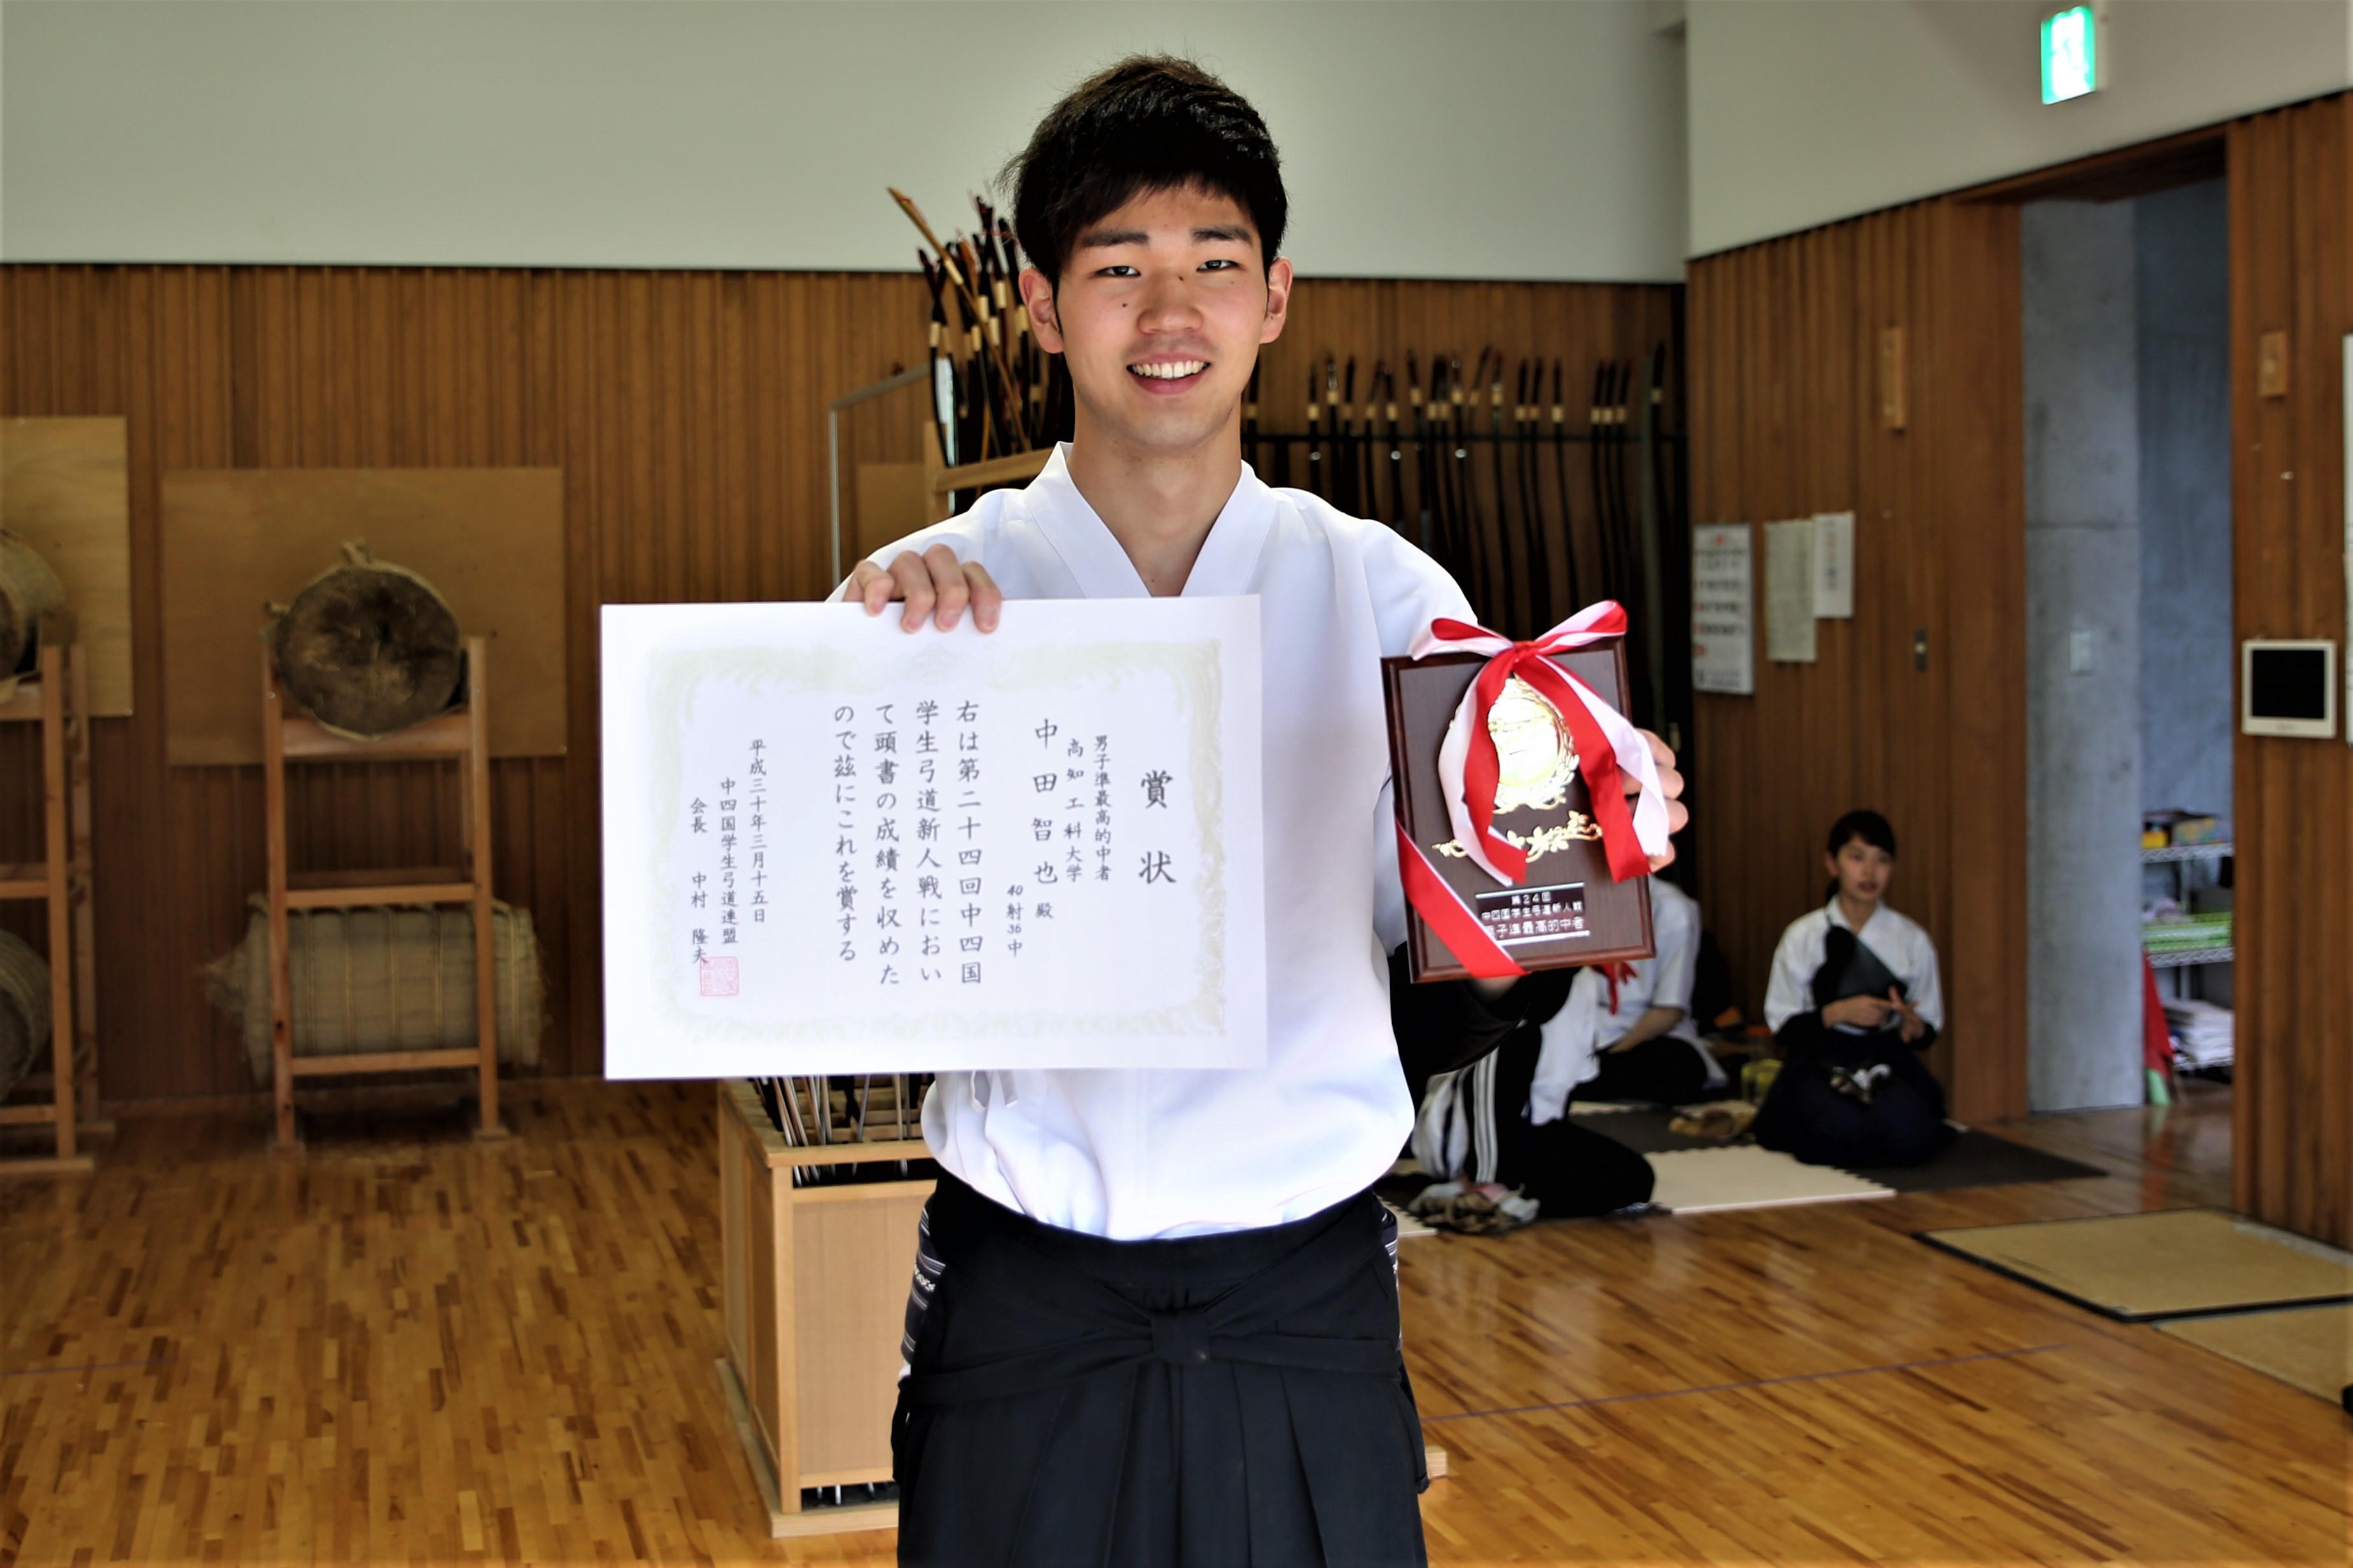 賞状
男子準最高的中者
高知工科大学
中田智也殿
40射36中
右は第二十四回中四国
学生弓道新人戦におい
て頭書の成績を収めた
ので茲にこれを賞する
平成三十年三月十五日
中四国学生弓道連盟
会長 中村 隆夫
第24回
中四国学生弓道新人戦
男子準最高的中者